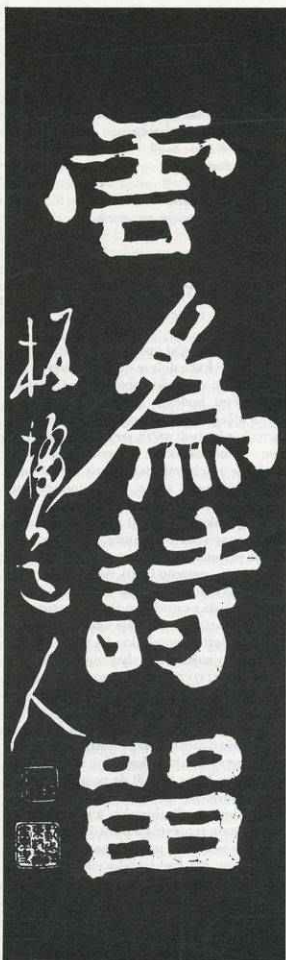 雲為詩留
板橋道人